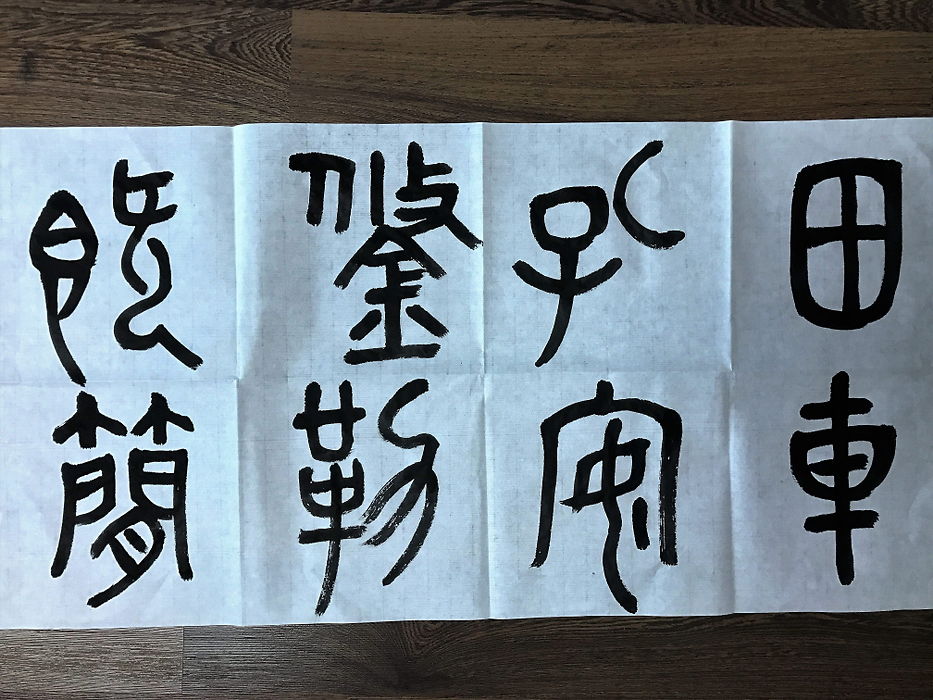 田車
孔安
鋚勒
既簡